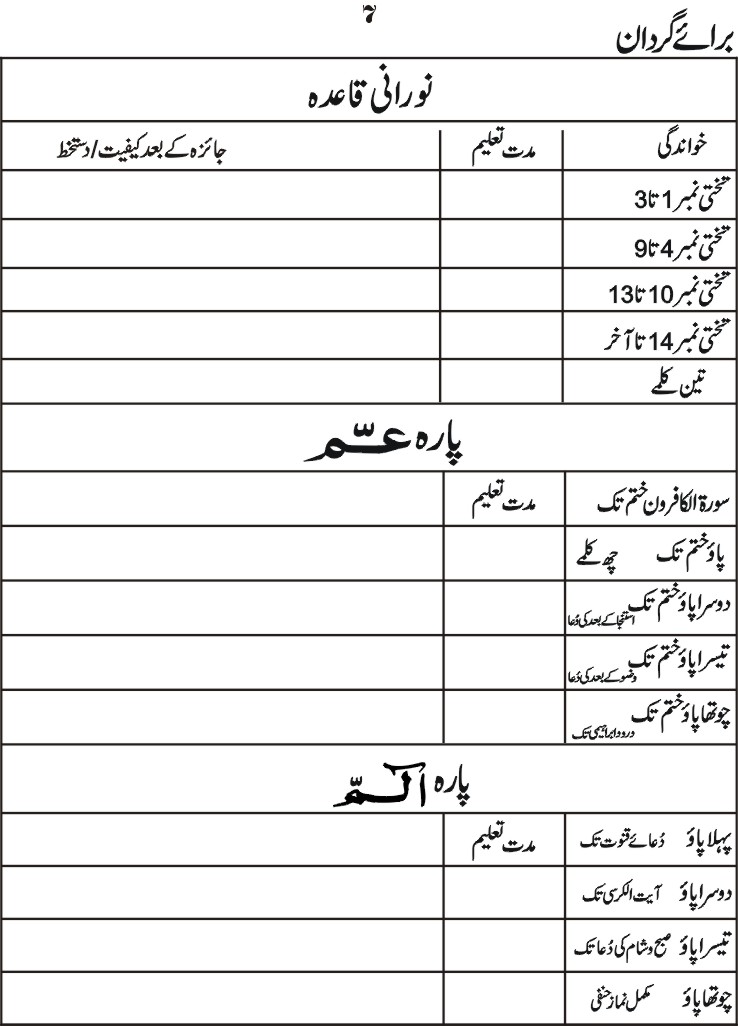 ۷
برائے گردان
نورانی قاعدہ
خواندگی مدت تعلیم جائزہ کے بعد کیفیت/دستخط
تختی نمبر 1 تا 3
تختی نمبر 4 تا 9
تختی نمبر 10 تا 13
تختی نمبر 14 تا آخر
تین کلمے
پارہ عمّ
سورۃ الکافرون ختم تک مدت تعلیم
پاؤ ختم تک چھ کلمے
دوسرا پاؤ ختم تک استنجا کے بعد کی دُعا
تیسرا پاؤ ختم تک وضو کے بعد کی دُعا
چوتھا پاؤ ختم تک درود ابراہیمی تک
پارہ الٓمّ
پہلا پاؤ دُعائے قنوت تک مدت تعلیم
دوسرا پاؤ آیت الکرسی تک
تیسرا پاؤ صبح و شام کی دُعا تک
چوتھا پاؤ مکمل نماز حنفی